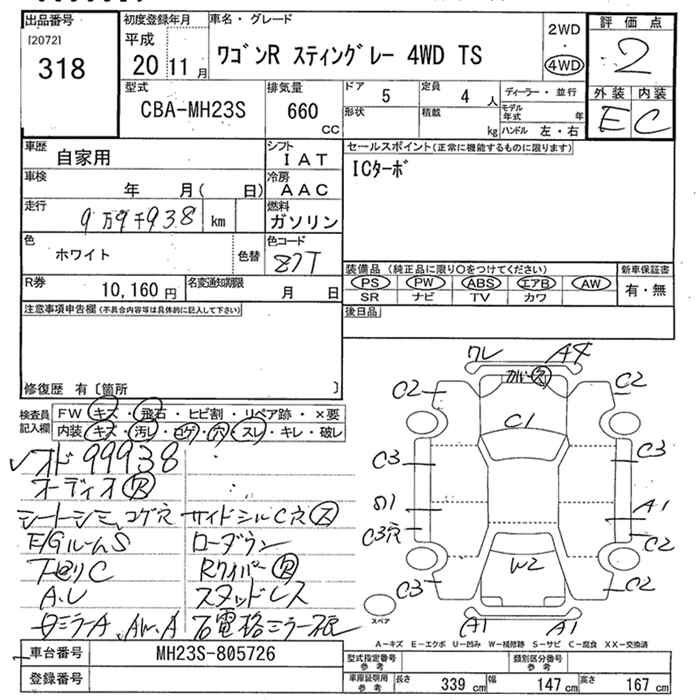 出品番号
[2072]
318
初度登録年月
平成
20 11 月
車名・グレード
ワゴンR スティングレー 4WD TS
2WD
・
4WD
評価点
2
外装 内装
E C
型式
CBA-MH23S
排気量
660 cc
ドア
5
定員
4 人
形状
積載
kg
ディーラー・並行
モデル年式 年
ハンドル 左・右
車歴
自家用
シフト
IAT
セールスポイント(正常に機能するものに限ります)
ICターボ
車検
年 月( 日)
冷房
AAC
走行
9万9千938 km
燃料
ガソリン
色
ホワイト
色替
色コード
Z7T
装備品 (純正品に限り○をつけてください)
PS PW ABS エアB AW
SR ナビ TV カワ
新車保証書
有・無
R券
10,160 円
名変通知期限
月 日
注意事項申告欄(不具合内容等は具体的に記入して下さい)
後日品
修復歴 有 [箇所 ]
検査員記入欄
FW キズ・飛石・ヒビ割・リペア跡・×要
内装 キズ・汚レ・コゲ・穴・スレ・キレ・破レ
オド 99938
オーディオR
シートシミ、コゲ穴 サイドシルC穴ス
E/GルームS ローダウン
下回リC Rワイパー R
A.U スタッドレス
ワレ A4
カバースス
C2 C2
C1
C3 C3
A1
C3穴 C2
W2
C3 C2
A1 A1
スペア
A-キズ E-エクボ U-凹み W-補修跡 S-サビ C-腐食 XX-交換済
車台番号
MH23S-805726
登録番号
型式指定番号 参考
類別区分番号 参考
車庫証明用 参考
長さ 339 cm 幅 147 cm 高さ 167 cm